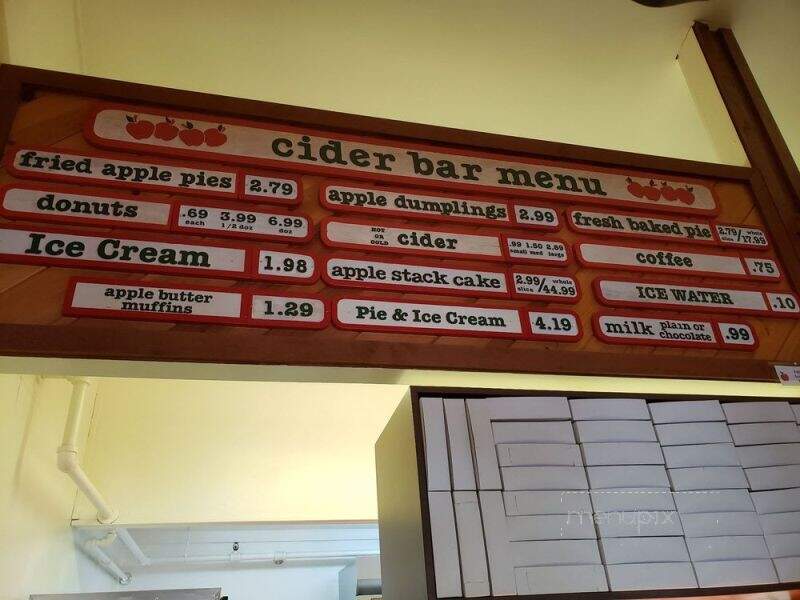 cider bar menu
fried apple pies 2.79
donuts .69 3.99 6.99
each 1/2 doz doz
Ice Cream 1.98
apple butter
muffins 1.29
apple dumplings 2.99
HOT
OR
COLD cider .99 1.50 2.89
small med large
apple stack cake 2.99 slice / whole 44.99
Pie & Ice Cream 4.19
fresh baked pie 2.79 slice / whole 17.99
coffee .75
ICE WATER .10
milk plain or
chocolate .99
menupix